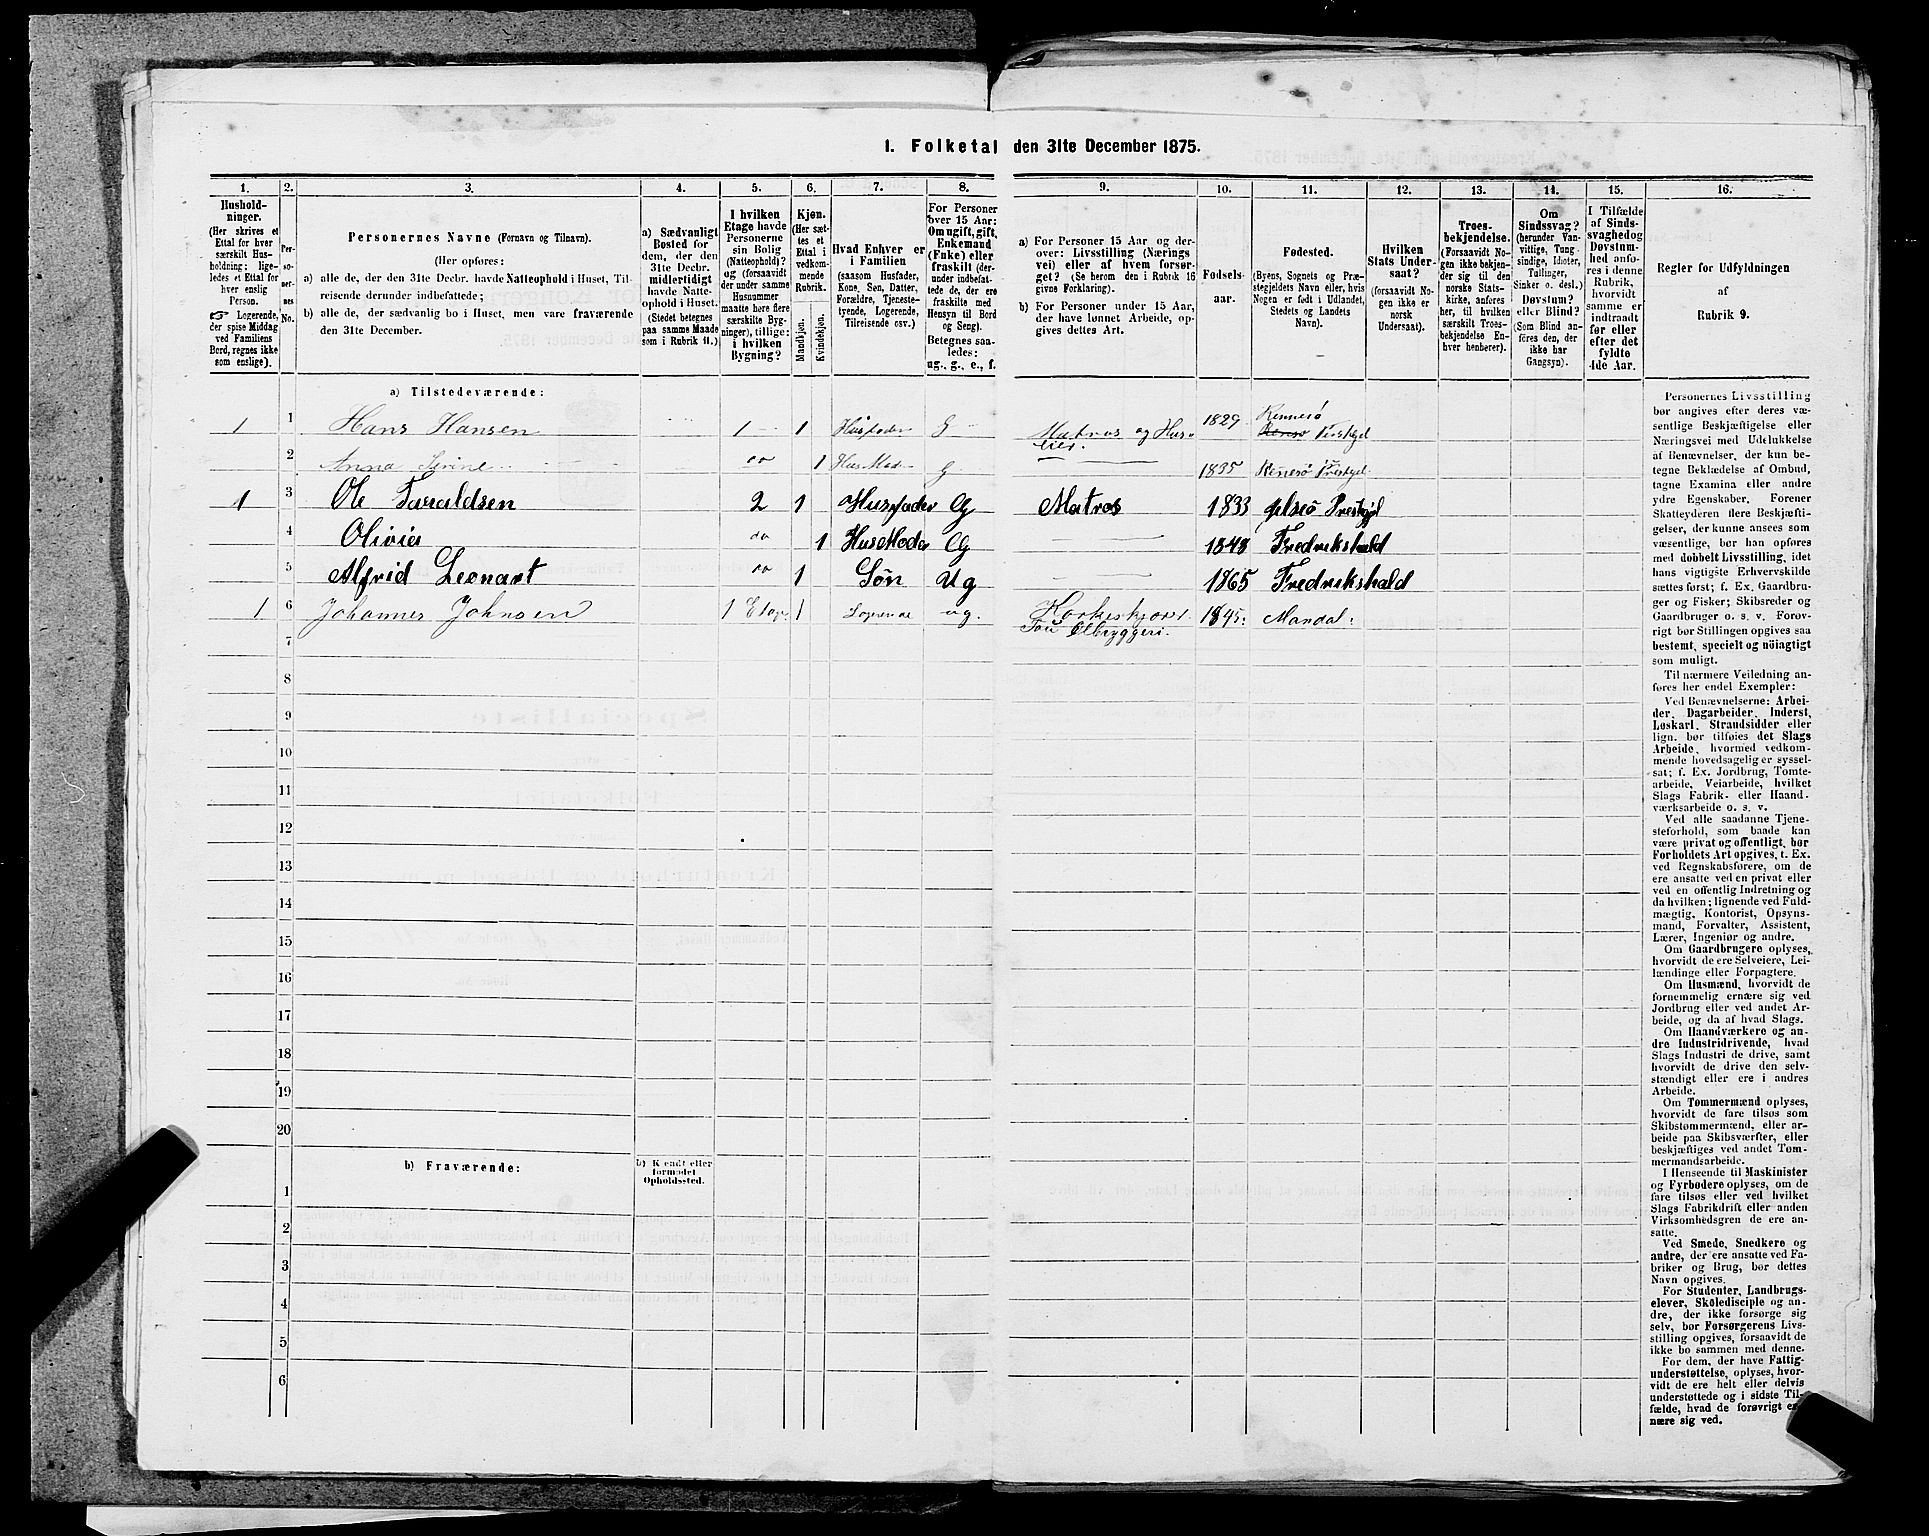 1. Folketal den 31te December 1875.
1. 2. 3. 4. 5. 6. 7. 8. 9. 10. 11. 12. 13. 14. 15. 16.
Hushold-
ninger.
(Her skrives et
Ettal for hver
særskilt Hus-
holdning; lige-
ledes et Ettal for
hver enslig
Person.
☞ Logerende,
der spise Middag
ved Familiens
Bord, regnes ikke
som enslige).
Per-
so-
ner-
nes
No.
Personernes Navne (Fornavn og Tilnavn).
(Her opføres:
a) alle de, der den 31te Decbr. havde Natteophold i Huset, Til-
reisende derunder indbefattede;
b) alle de, der sædvanlig bo i Huset, men vare fraværende
den 31te December.
a) Sædvanligt
Bosted for
dem, der den
31te Decbr.
midlertidigt
havde Natte-
ophold i Huset.
(Stedet betegnes
paa samme Maade
som i Rubrik 11.)
I hvilken
Etage havde
Personerne
sin Bolig
(Natteophold)?
og (forsaavidt
der under samme
Husnummer
maatte høre flere
særskilte Byg-
ninger), tillige:
i hvilken
Bygning?
Kjøn.
(Her sæt-
tes et
Ettal i
vedkom-
mende
Rubrik.
Mandkjøn.
Kvindekjøn.
Hvad Enhver er
i Familien
(saasom Husfader,
Kone, Søn, Datter,
Forældre, Tjeneste-
tyende, Logerende,
Tilreisende osv.)
For Personer
over 15 Aar:
Om ugift, gift,
Enkemand
(Enke) eller
fraskilt (der-
under indbefat-
tede de, der ere
fraskilte med
Hensyn til Bord
og Seng).
Betegnes saa-
ledes:
ug., g., e., f.
a) For Personer 15 Aar og der-
over: Livsstilling (Nærings
vei) eller af hvem forsør-
get? (Se herom den i Rubrik 16
givne Forklaring).
b) For Personer under 15 Aar,
der have lønnet Arbeide, op-
gives dettes Art.
Fødsels-
aar.
Fødested.
(Byens, Sognets og Præ-
stegjeldets Navn eller, hvis
Nogen er født i Udlandet,
Stedets og Landets
Navn).
Hvilken
Stats Under-
saat?
(forsaavidt No-
gen ikke er
norsk
Undersaat).
Troes-
bekjendelse.
(Forsaavidt No-
gen ikke bekjen-
der sig til den
norske Stats-
kirke, anføres
her, til hvilken
særskilt Troes-
bekjendelse En-
hver henhører).
Om
Sindssvag?
(herunder Van-
vittige, Tung-
sindige, Idioter,
Tullinger,
Sinker o. desl.)
Døvstum?
eller Blind?
(Som Blind an-
føres den, der
ikke har
Gangsyn).
I Tilfælde
af Sinds-
svaghed og
Døvstum-
hed anfø-
res i denne
Rubrik,
hvorvidt
samme er
indtraadt
før eller
efter det
fyldte
4de Aar.
Regler for Udfyldningen
af
Rubrik 9.
a) Tilstedeværende:
1 1 Hans Hansen 1 1 Husfader g Matros og Hus- 1829 Rennesø
eier. Prestgjel
2 Anna Serine do 1 HusModer g 1835 Rennesø Prestgjel.
1 3 Ole Taraldsen 2 1 Husfader G Matros 1833 Prestgjel
4 Olivia do 1 HusModer G 1848 Fredrikshald
5 Alfrid Leonart do 1 Søn Ug 1865 Fredrikshald
1 6 Johannes Johnsen 1 Etage 1 Logerende ug. 1845. Mandal.
Tou Ølbryggeri.
7
8
9
10
11
12
13
14
15
16
17
18
19
20
b) Fraværende:
b) Kjendt eller
formodet
Opholdssted.
1
2
3
4
5
6
Personernes Livsstilling
bør angives efter deres væ-
sentlige Beskjæftigelse eller
Næringsvei med Udelukkelse
af Benævnelser, der kun be-
tegne Beklædelse af Ombud,
tagne Examina eller andre
ydre Egenskaber. Forener
Skatteyderen flere Beskjæfti-
gelser, der kunne ansees som
væsentlige, bør han opføres
med dobbelt Livsstilling, idet
hans vigtigste Erhvervskilde
sættes først; f. Ex. Gaardbru-
ger og Fisker; Skibsreder og
Gaardbruger o. s. v. Forøv-
rigt bør Stillingen opgives saa
bestemt, specielt og nöiagtigt
som muligt.
Til nærmere Veiledning an-
føres her endel Exempler:
Ved Benævnelserne: Arbei-
der, Dagarbeider, Inderst,
Løskarl, Strandsidder eller
lign. bør tilføies det Slags
Arbeide, hvormed vedkom-
mende hovedsagelig er syssel-
sat; f. Ex. Jordbrug, Tomte-
arbeide, Veiarbeide, hvilket
Slags Fabrik- eller Haand-
værksarbeide o. s. v.
Ved alle saadanne Tjene-
steforhold, som baade kan
være privat og offentligt, bør
Forholdets Art opgives, t. Ex.
ved Regnskabsførere, om de
ere ansatte ved en privat eller
ved en offentlig Indretning og
da hvilken; lignende ved Fuld-
mægtig, Kontorist, Opsyns-
mand, Forvalter, Assistent,
Lærer, Ingeniør og andre.
Om Gaardbrugere oplyses,
hvorvidt de ere Selveiere, Lei-
lændinge eller Forpagtere.
Om Husmænd, hvorvidt de
fornemmelig ernære sig ved
Jordbrug eller ved andet Ar-
beide, og da af hvad Slags.
Om Haandværkere og an-
dre Industridrivende, hvad
Slags Industri de drive, samt
hvorvidt de drive den selv-
stændigt eller ere i andres
Arbeide.
Om Tømmermænd oplyses,
hvorvidt de fare tilsøs som
Skibstømmermænd, eller ar-
beide paa Skibsværfter, eller
beskjæftiges ved andet Tøm-
mermandsarbeide.
I Henseende til Maskinister
og Fyrbødere oplyses, om de
fare tilsøs eller ved hvilket
Slags Fabrikdrift eller anden
Virksomhedsgren de ere an-
satte.
Ved Smede, Snedkere og
andre, der ere ansatte ved Fa-
briker og Brug, bør dettes
Navn opgives.
For Studenter, Landbrugs-
elever, Skoledisciple og an-
dre, der ikke forsørge sig
selv, bør Forsørgerens Livs-
stilling opgives, forsaavidt de
ikke bo sammen med denne.
For dem, der have Fattig-
understøttelse, oplyses, hvor-
vidt de ere helt eller delvis
understøttede og i sidste Til-
fælde, hvad de forøvrigt er-
nære sig ved.